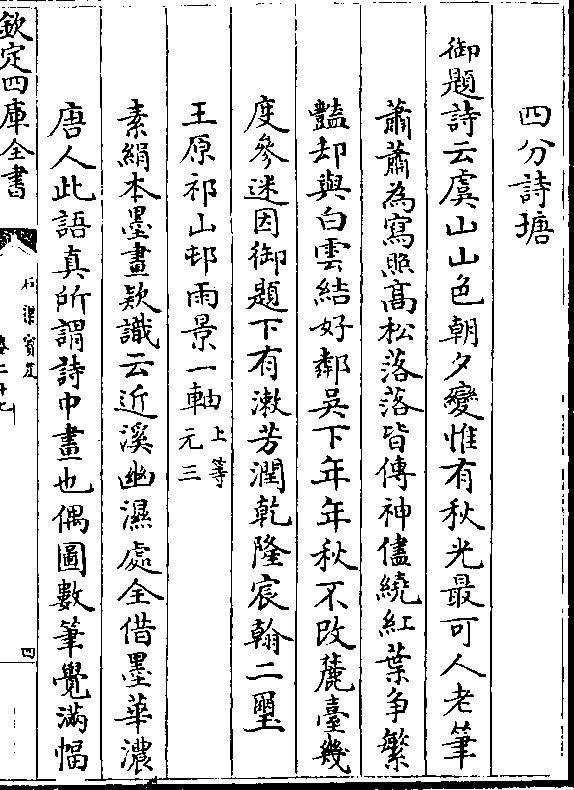 四分詩塘
御題詩云虞山山色朝夕變惟有秋光最可人老筆
蕭蕭為寫照髙松落落皆傳神儘繞紅葉争繁
豔却與白雲結好鄰吳下年年秋不改麓臺幾
度參迷因御題下有漱芳潤乾隆宸翰二璽
王原祁山邨雨景一軸上等元三
素絹本墨畫欵識云近溪幽濕處全借墨華濃
唐人此語真所謂詩中畫也偶圖數筆覺滿幅
欽定四庫全書
石渠寶笈
卷二十七
四